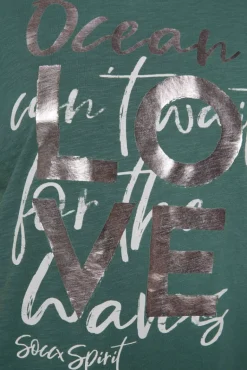 Ocean
LOVE
can't wait
for the
Waves
Soccx Spirit